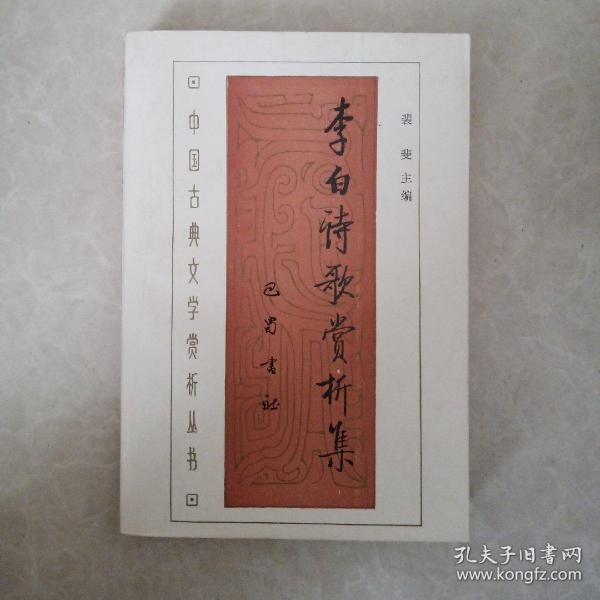 裴斐 主编
李白诗歌赏析集
巴蜀书社
中国古典文学赏析丛书
孔夫子旧书网
www.kongfz.com